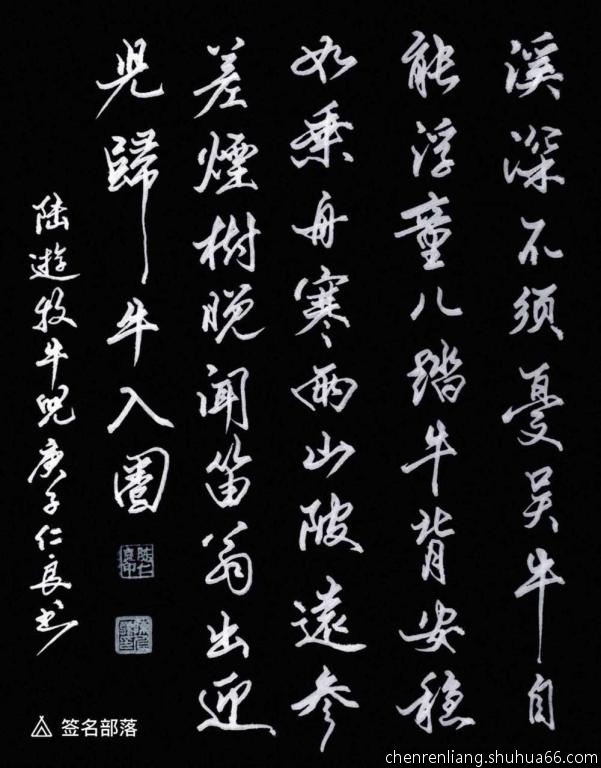 溪深不须憂吴牛自
能浮童儿踏牛背安穩
如乘舟寒雨山陂遠参
差煙樹晚闻笛翁出迎
兒歸牛入圈
陆遊牧牛兒庚子仁良书
签名部落
chenrenliang.shuhua66.com